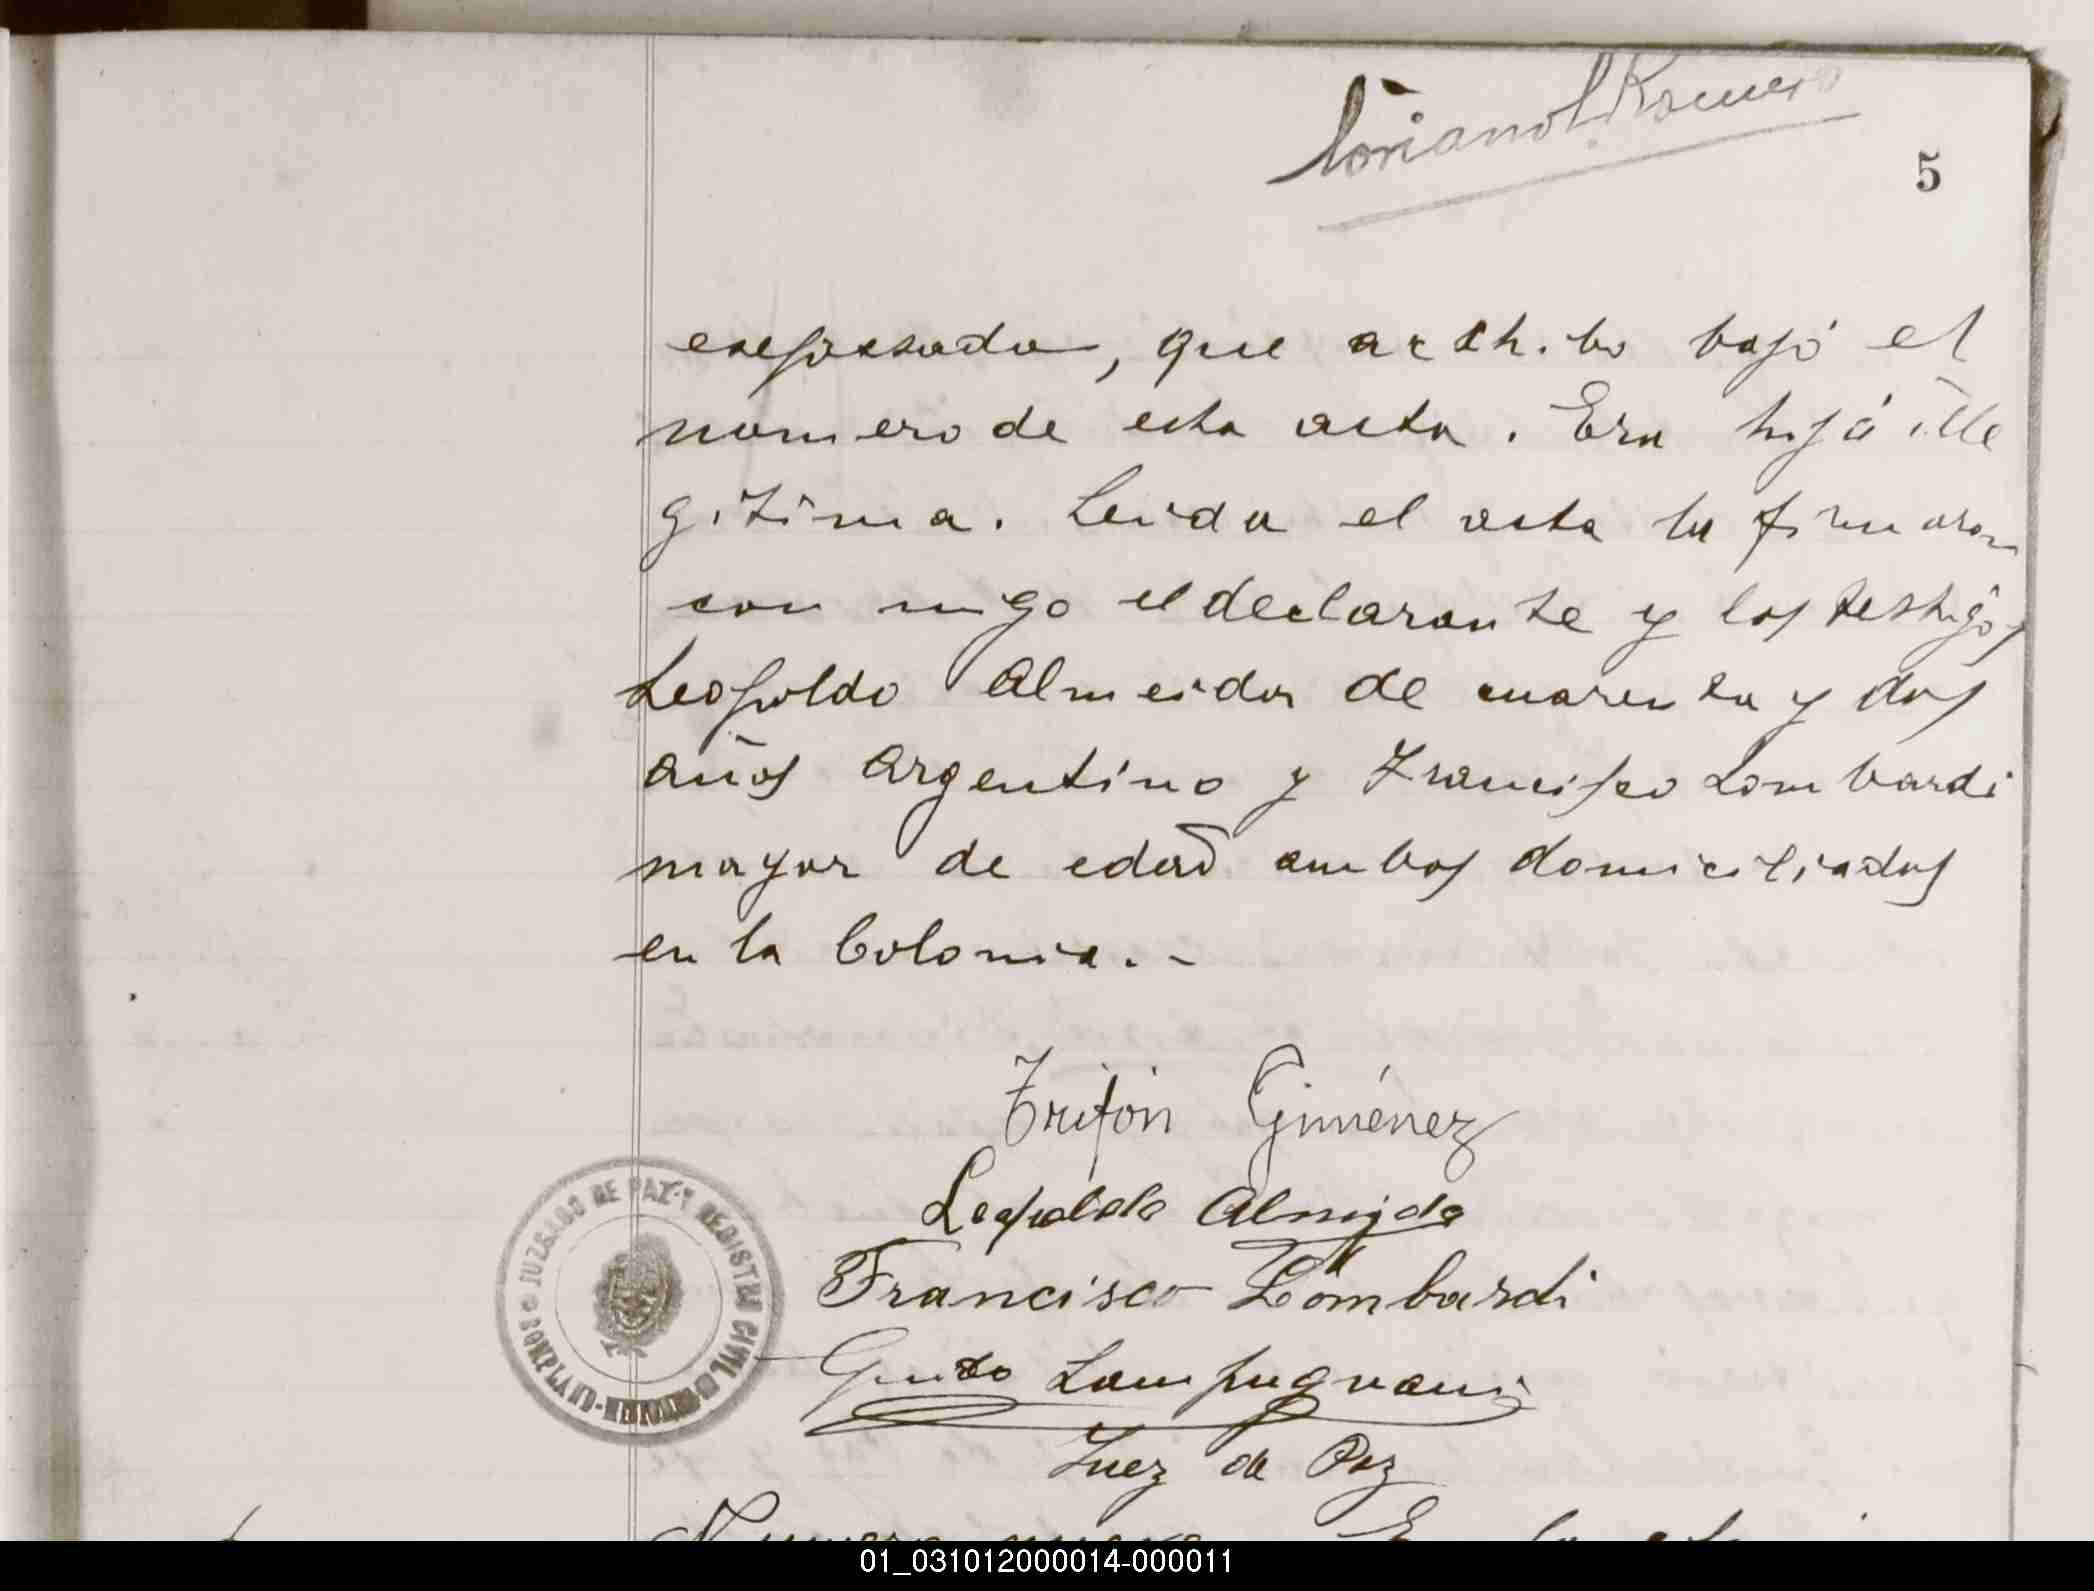 Soriano L. Romero
5
expresada, que archibo bajó el
número de esta acta. Era hijá ille
gitima. Leida el acta la firmaron
con migo el declarante y los testigos
Leopoldo Almeida de cuarenta y dos
años Argentino y Francisco Lombardi
mayor de edad ambos domiciliados
en la Colonia.-
Trifón Giménez
Leopoldo Almejda
Francisco Lombardi
Guido Lampugnani
Juez de Paz
JUZGADO DE PAZ Y REGISTRO CIVIL
BOMPLAND - MISIONES
Numero nueve. En la
01_031012000014-000011